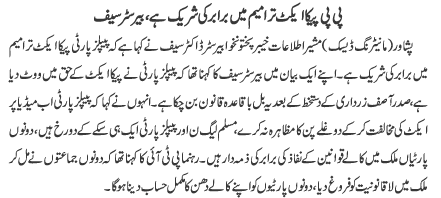 پی پی پیکا ایکٹ ترامیم میں برابر کی شریک ہے، بیرسٹر سیف
پشاور (مانیٹرنگ ڈیسک) مشیر اطلاعات خیبر پختونخوا بیرسٹر ڈاکٹر سیف نے کہا ہے کہ پیپلز پارٹی پیکا ایکٹ ترامیم
میں برابر کی شریک ہے۔ اپنے ایک بیان میں بیرسٹر سیف کا کہنا تھا کہ پیپلز پارٹی نے پیکا ایکٹ کے حق میں ووٹ دیا
ہے، صدر آصف زرداری کے دستخط کے بعد یہ بل باقاعدہ قانون بن چکا ہے۔ انہوں نے کہا کہ پیپلز پارٹی اب میڈیا پر
ایکٹ کی مخالفت کر کے دوغلے پن کا مظاہرہ نہ کرے، مسلم لیگ ن اور پیپلز پارٹی ایک ہی سکے کے دو رخ ہیں، دونوں
پارٹیاں ملک میں کالے قوانین کے نفاذ کی برابر کی ذمہ دار ہیں۔ رہنما پی ٹی آئی کا کہنا تھا کہ دونوں جماعتوں نے مل کر
ملک میں لا قانونیت کو فروغ دیا، دونوں پارٹیوں کو اپنے کالے دھن کا مکمل حساب دینا ہوگا۔